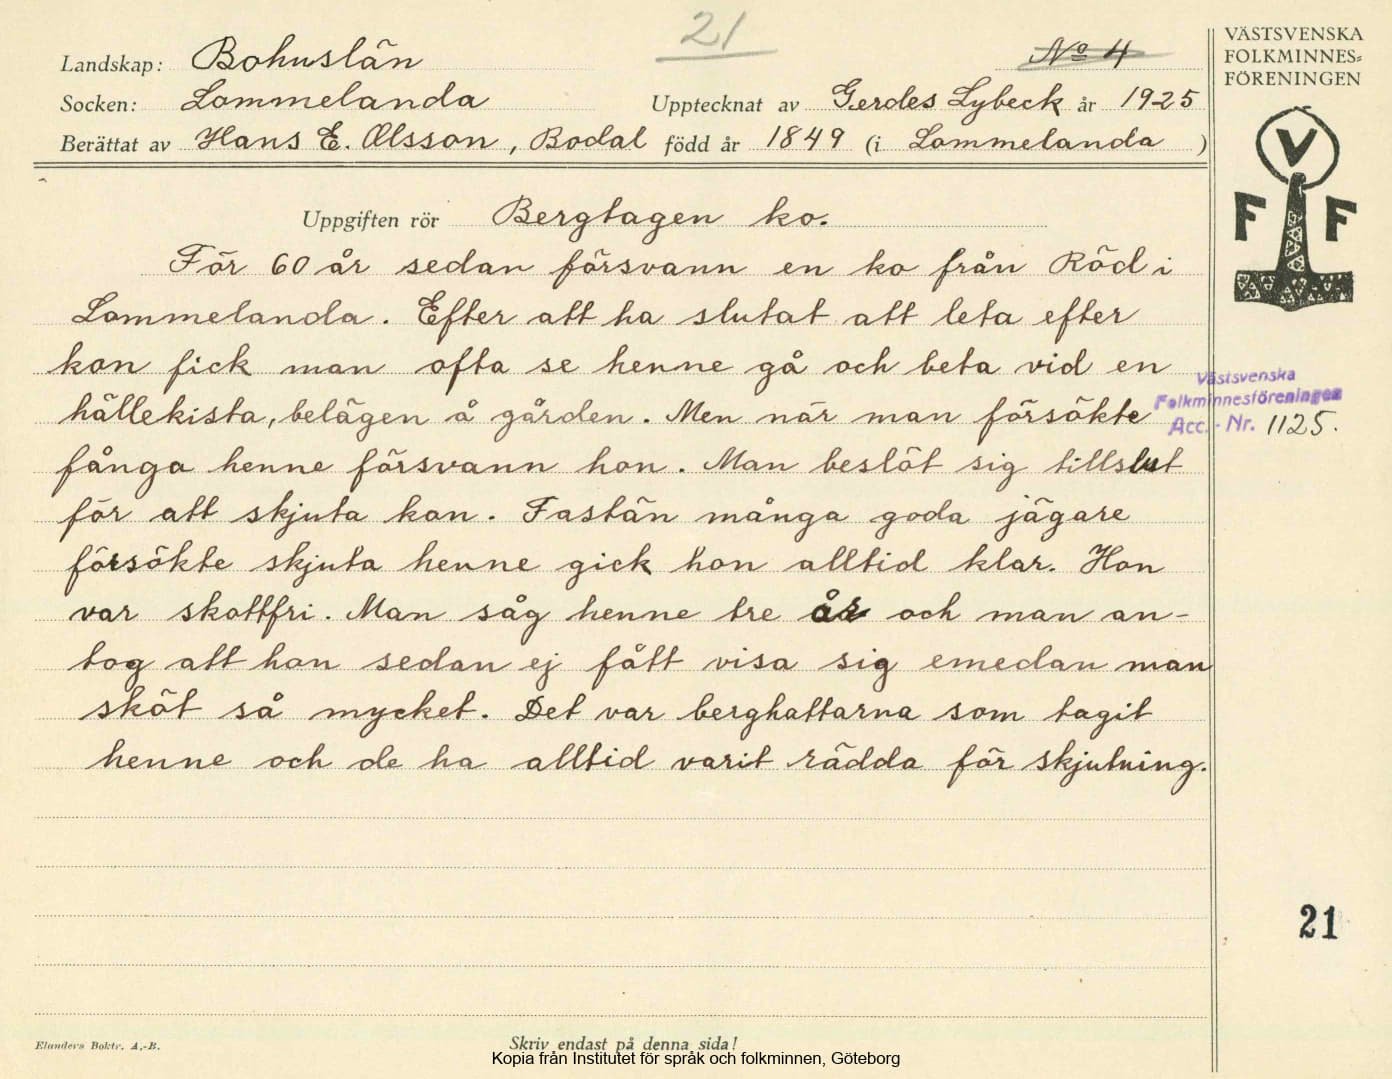 21
Nº 4
VÄSTSVENSKA
FOLKMINNES=
FÖRENINGEN
Landskap: Bohuslän
Socken: Lommelanda Upptecknat av Gerdes Lybeck år 1925
Berättat av Hans E. Olsson, Bodal född år 1849 (i Lommelanda )
V
F F
Uppgiften rör Bergtagen ko.
För 60 år sedan försvann en ko från Röd i
Lommelanda. Efter att ha slutat att leta efter
kon fick man ofta se henne gå och beta vid en
hällekista, belägen å gården. Men när man försökte
fånga henne försvann hon. Man beslöt sig tillslut
för att skjuta kon. Fastän många goda jägare
försökte skjuta henne gick hon alltid klar. Hon
var skottfri. Man såg henne tre år och man an-
tog att hon sedan ej fått visa sig emedan man
sköt så mycket. Det var berghattarna som tagit
henne och de ha alltid varit rädda för skjutning.
Västsvenska
Folkminnesföreningen
Acc. - Nr. 1125.
21
Elanders Boktr. A.-B.
Skriv endast på denna sida!
Kopia från Institutet för språk och folkminnen, Göteborg